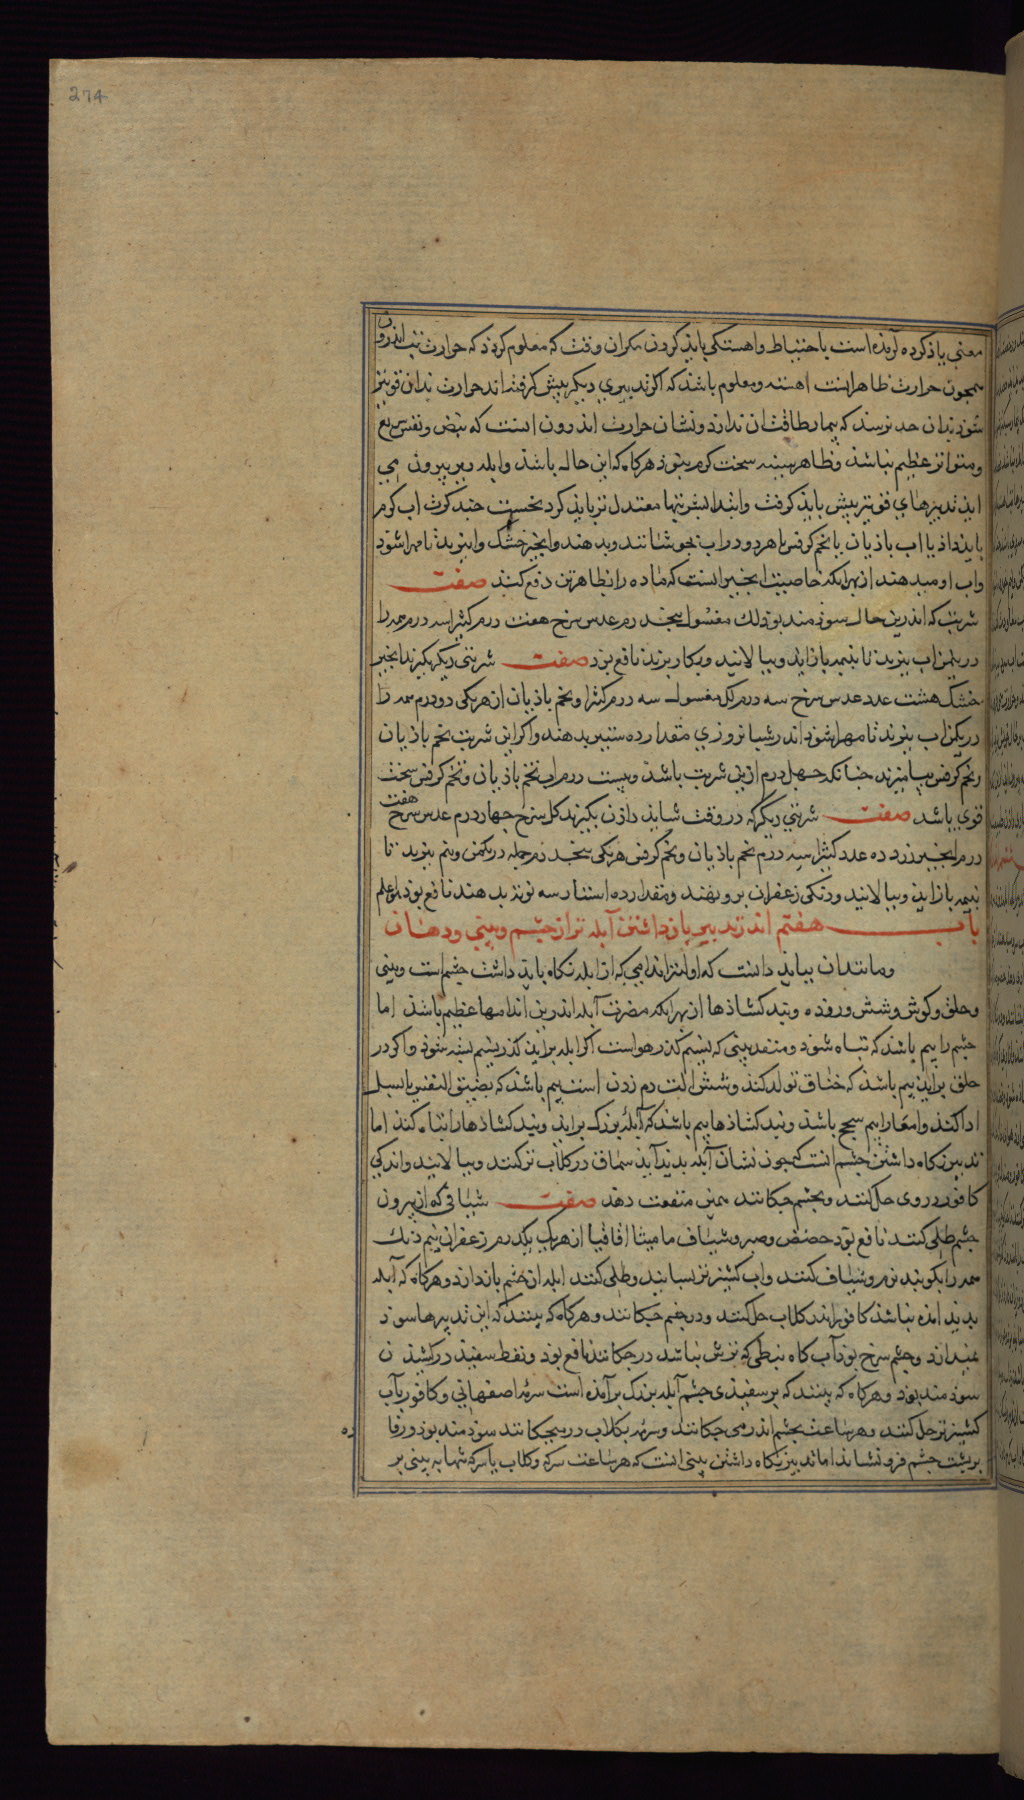 274
معنی یاذ کرده آمذه است باحتیاط و اهستکی بایذ کردن مکر ان وقت که معلوم کردذ که حرارت تب اندرون
همجون حرارت ظاهر است اهسته و معلوم باشذ که اکر تدبیری دیکر بیش کرفته اند حرارت بدان قویتر
شوذ بدان حد نرسذ که بیمار طاقت ان ندارد و نشان حرارت اندرون انست که نبض و نفس سریع
و متواتر عظیم نباشذ و ظاهر سینه سخت کرم نبوذ هرکاه که این حال باشذ و ابله دیر بیرون می
ایذ تدبیرهای قویتر بیش بایذ کرفت و ابتدا بشربتها معتدل تر بایذ کرد نخست جند کرت اب کرم
با اب باذیان یا تخم کرفس یا هر دو در اب بجوشانند و بدهند و انجیر خشک و اب بزند تا مهرا شوذ
و اب او میدهند از بهر انکه خاصیت انجیر انست که ماده را بظاهر تن دفع کند صفت
شربتی که اندرین حال سوذمند بوذ لک مغسول بنج درم عدس سرخ هفت درم کثیرا سه درم همه را
در یکمن اب ببزند تا بنیمه باز اید و ببالایند و بکار برند نافع بوذ صفت شربتی دیکر بکیرند انجیر
خشک هشت عدد عدس سرخ سه درم لک مغسول سه درم کثیرا و تخم باذیان از هر یکی دو درم همه را
در یکمن اب ببزند تا مهرا شوذ اندر شبانروزی مقدار ده ستیر بدهند و اکر این شربت بتخم باذیان
و تخم کرفس بیامیزند جنانکه جهل درم ازین شربت باشذ و بیست درم اب تخم باذیان و تخم کرفس سخت
قوی باشد صفت شربتی دیکر که در وقت شاید داذن بکیرند کل سرخ جهار درم عدس سرخ هفت
درم انجیر زرد ده عدد کثیرا سه درم تخم باذیان و تخم کرفس هر یکی سه درم جمله در یکمن و نیم ببزند تا
بنیمه باز ایذ و ببالایند و دنکی زعفران برو نهند و مقدار ده استار سه نوبت بدهند نافع بوذ
باب هفتم اندر تدبیر باز داشتن آبله تر از جشم و بینی و دهان
و مانند ان بباید دانست که اولیتر اندامی که از ابله نکاه بایذ داشت جشم است و بینی
و حلق و کوش و شش و روذه و بند کشاذها از بهر انکه مضرت آبله اندرین اندامها عظیم باشذ اما
جشم را بیم باشذ که تباه شوذ و منفد بینی که نسیم کذر هواست اکر ابله براید کذر نسیم بسته شوذ و اکر در
حلق براید بیم باشذ که خناق تولد کند و شش الت دم زدن است بیم باشذ که بضیق النفس یا بسل
ادا کند و امعا را بیم سحج باشذ و بند کشاذها بیم باشذ که آبله بزرک براید و بند کشاذها را تباه کند اما
تدبیر نکاه داشتن جشم انست که جون نشان آبله بدید آید سماق در کلاب تر کنند و ببالایند و اندکی
کافور در وی حل کنند و بجشم جکانند همین منفعت دهد صفت شیافی که از بیرون
جشم طلی کنند نافع بوذ حضض و صبر و شیاف مامیثا اقاقیا از هر یک یکدرم زعفران نیم دنک
همه را بکوبند نرم و شیاف کنند و باب کشنیز تر بسایند و طلی کنند ابله از جشم باز دارد و هرکاه که آبله
بدید امده نباشذ کافور اندر کلاب حل کنند و در جشم جکانند و هرکاه که بینند که این تدبیرها سوذ
نمیدارد و جشم سرخ بوذ آب کامه نبطی که ترش نباشد در جکانند نافع بوذ و نفط سفید در کشیذن
سوذمند بوذ و هرکاه که بینند که بر سفیذی جشم آبله بزرک برآمده است سرمه اصفهانی و کافور بآب
کشنیز تر حل کنند و هر ساعت بجشم اندر می جکانند و سرمه بکلاب در میجکانند سوذمند بوذ و رفاده
بر بشت جشم فرو نشاند اما تدبیر نکاه داشتن بینی انست که هر ساعت سرکه و کلاب یا سرکه تنها به بینی بر